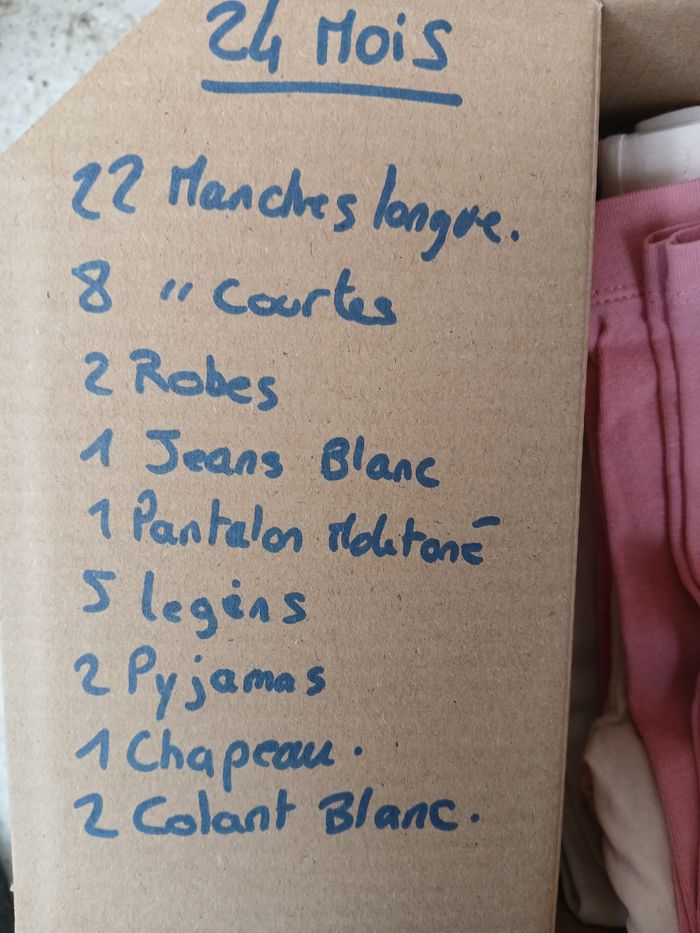 24 Mois
22 Manches longue.
8 " courtes
2 Robes
1 Jeans Blanc
1 Pantalon Moletoné
5 legins
2 Pyjamas
1 Chapeau.
2 Colant Blanc.